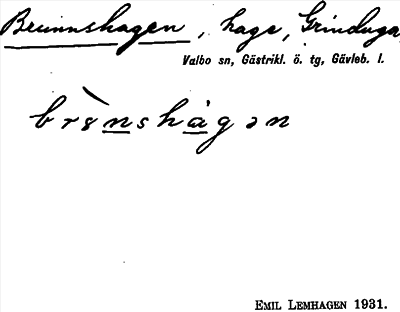 Brunnshagen, hage, Grinduga,
Valbo sn, Gästrikl. ö. tg, Gävleb. l.
brȣ̀nshágən
EMIL LEMHAGEN 1931.